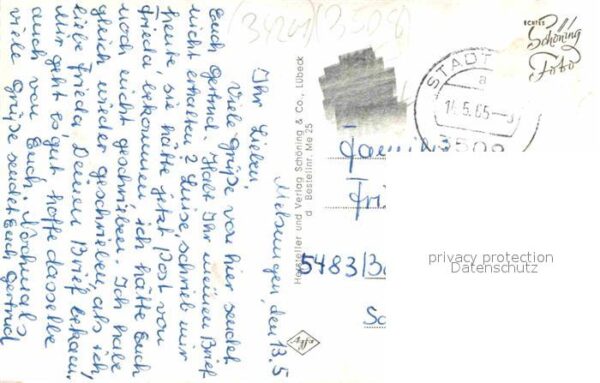 Melsungen, den 13.5
Ihr Lieben,
Viele Grüße von hier sendet
Euch Gertrud. Habt Ihr meinen Brief
nicht erhalten? Luise schrieb mir
heute, sie hätte jetzt Post von
Frieda bekommen ich hätte Euch
noch nicht geschrieben. Ich habe
gleich wieder geschrieben, als ich,
liebe Frieda Deinen Brief bekam.
Mir geht es gut hoffe dasselbe
auch von Euch. Nochmals
viele Grüße sendet Euch Gertrud
Hersteller und Verlag Schöning & Co., Lübeck
d Bestellnr. Me 25
Agfa
ECHTES
Schöning
Foto
STADT
a
14.5.65-
3509
5483/Ba
privacy protection
Datenschutz